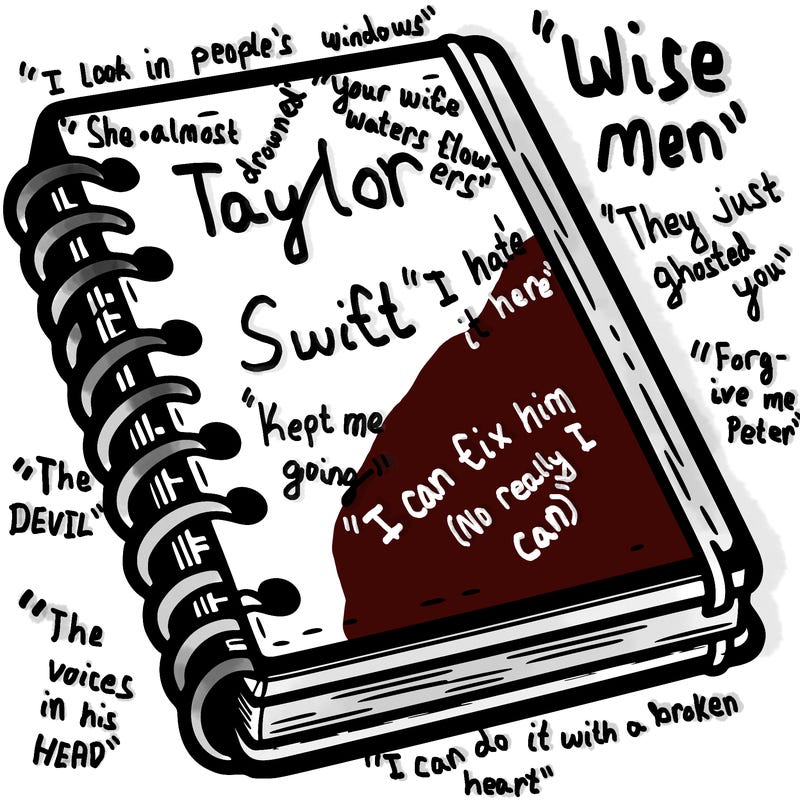 "I look in people's windows"
"She almost
drowned"
"your wife
waters flow-
ers"
Taylor
Swift
"I hate
it here"
"Kept me
going"
"I can fix him
(No really I
can)"
"Wise
men"
"They just
ghosted
you"
"Forg-
ive me
Peter"
"The
DEVIL"
"The
voices
in his
HEAD"
"I can do it with a broken
heart"